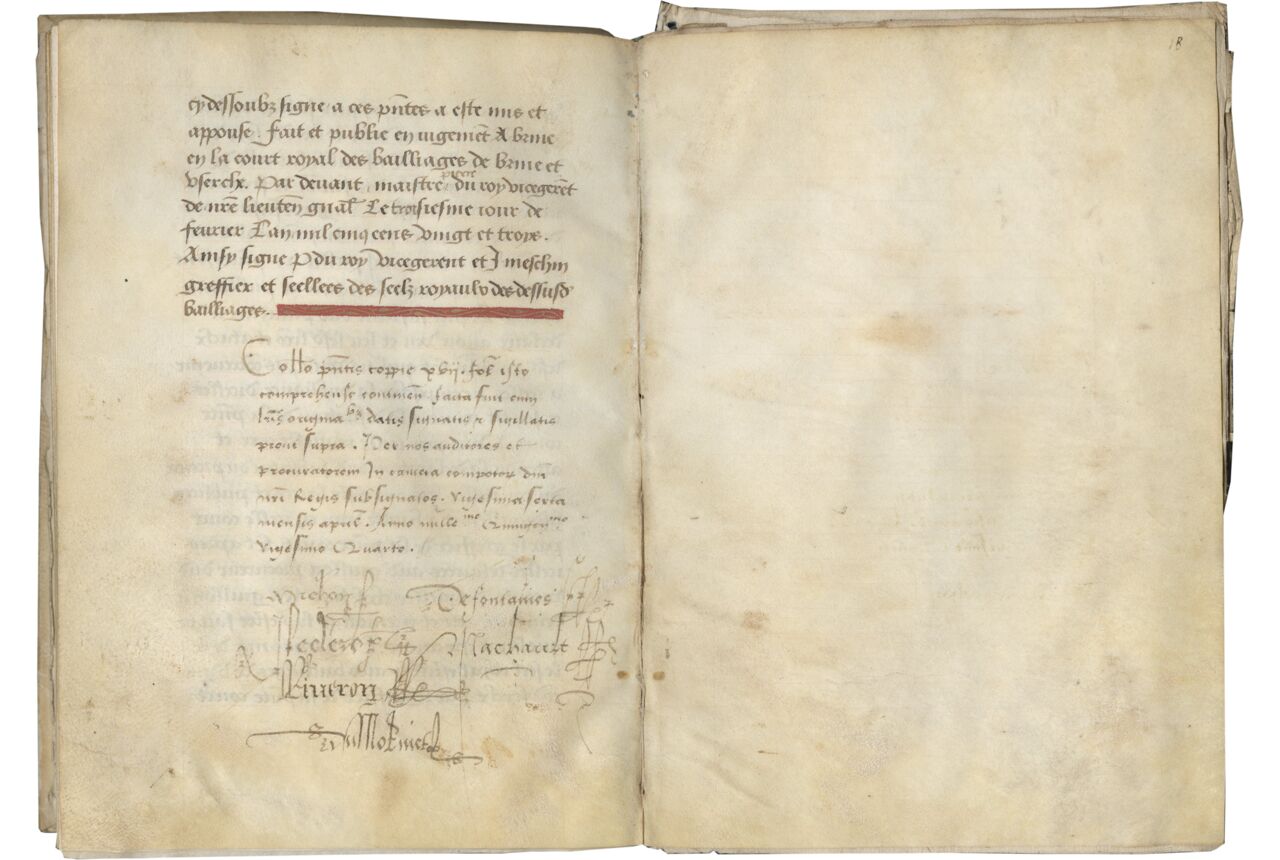 cy dessoubz signe a ces pñtes a este mis et
appouse. Fait et publie en iugement A brive
en la court royal des bailliages de brive et
Userche. Par devant maistre pierre du roy vicegerēt
de nrē lieuten gnāl Le troisiesme iour de
fevrier L'an mil cinq cens vingt et troys.
Ainsy signe P du roy vicegerent et J meschin
greffier et seellees des seelz royaulx des dessusd
bailliages.
Collo pñtis coppie xvii. fol isto
comprehense continen facta fuit cum
lrīs originalibz datis signatis & sigillatis
prout supra. Per nos auditores et
procuratorem In camera compotor dni
nrī Regis subsignatos. vigesima sexta
mensis aprilis. Anno mille mo Quingen mo
vigesimo Quarto.
Defontaines
Leclerc Machault
Riveron
18